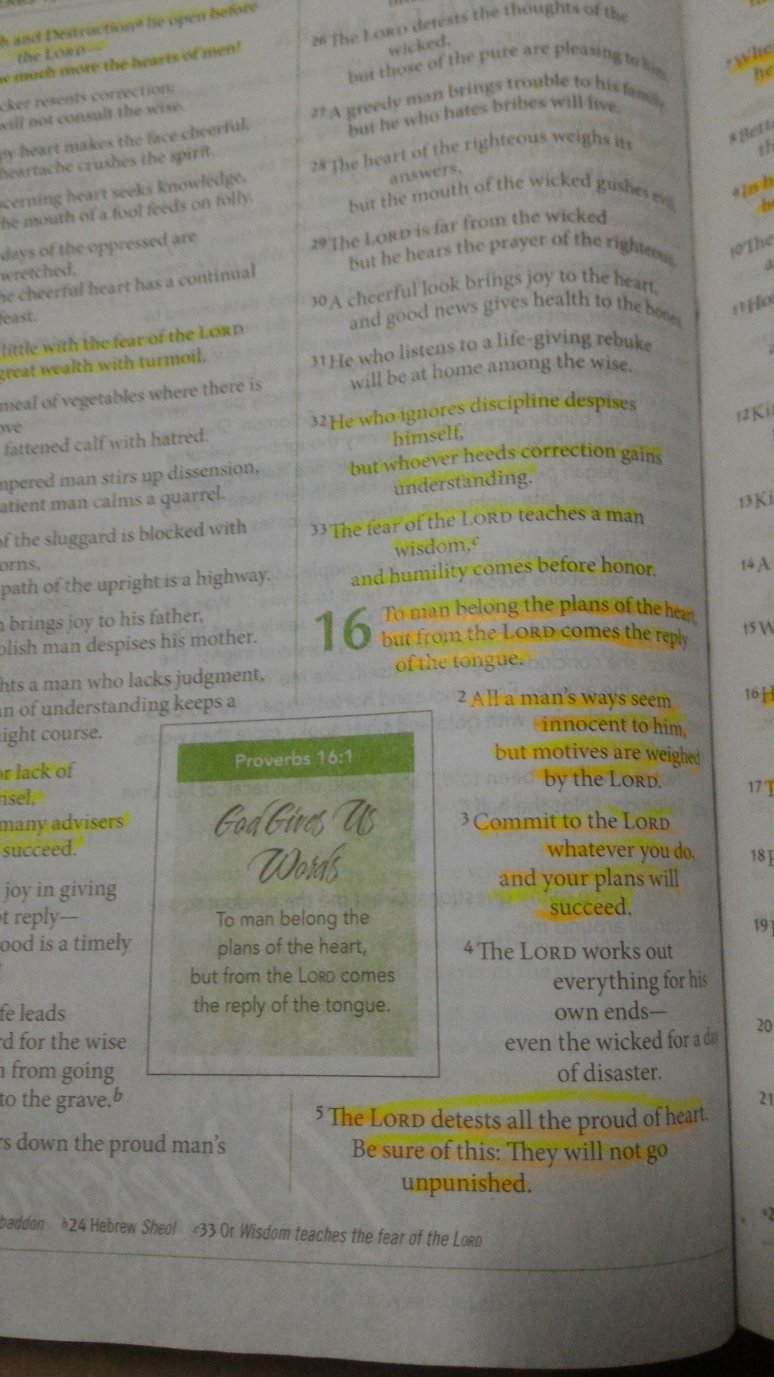 and Destruction a lie open before
the LORD—
much more the hearts of men!
resents correction;
will not consult the wise.
heart makes the face cheerful,
heartache crushes the spirit.
heart seeks knowledge,
mouth of a fool feeds on folly.
days of the oppressed are
wretched,
cheerful heart has a continual
little with the fear of the LORD
great wealth with turmoil.
meal of vegetables where there is
fattened calf with hatred.
man stirs up dissension,
man calms a quarrel.
of the sluggard is blocked with
path of the upright is a highway.
brings joy to his father,
man despises his mother.
a man who lacks judgment,
of understanding keeps a
course.
lack of
many advisers
succeed.
joy in giving
reply—
is a timely
leads
for the wise
from going
to the grave.b
down the proud man's
26 The LORD detests the thoughts of the
wicked,
but those of the pure are pleasing to him.
27 A greedy man brings trouble to his family,
but he who hates bribes will live.
28 The heart of the righteous weighs its
answers,
but the mouth of the wicked gushes evil.
29 The LORD is far from the wicked
but he hears the prayer of the righteous.
30 A cheerful look brings joy to the heart,
and good news gives health to the bones.
31 He who listens to a life-giving rebuke
will be at home among the wise.
32 He who ignores discipline despises
himself,
but whoever heeds correction gains
understanding.
33 The fear of the LORD teaches a man
wisdom,c
and humility comes before honor.
16 To man belong the plans of the heart,
but from the LORD comes the reply
of the tongue.
2 All a man's ways seem
innocent to him,
but motives are weighed
by the LORD.
3 Commit to the LORD
whatever you do,
and your plans will
succeed.
4 The LORD works out
everything for his
own ends—
even the wicked for a day
of disaster.
5 The LORD detests all the proud of heart.
Be sure of this: They will not go
unpunished.
Proverbs 16:1
God Gives Us
Words
To man belong the
plans of the heart,
but from the LORD comes
the reply of the tongue.
b24 Hebrew Sheol c33 Or Wisdom teaches the fear of the LORD
10 The
11
12
13
14 A
15
16
17
18
19
20
21